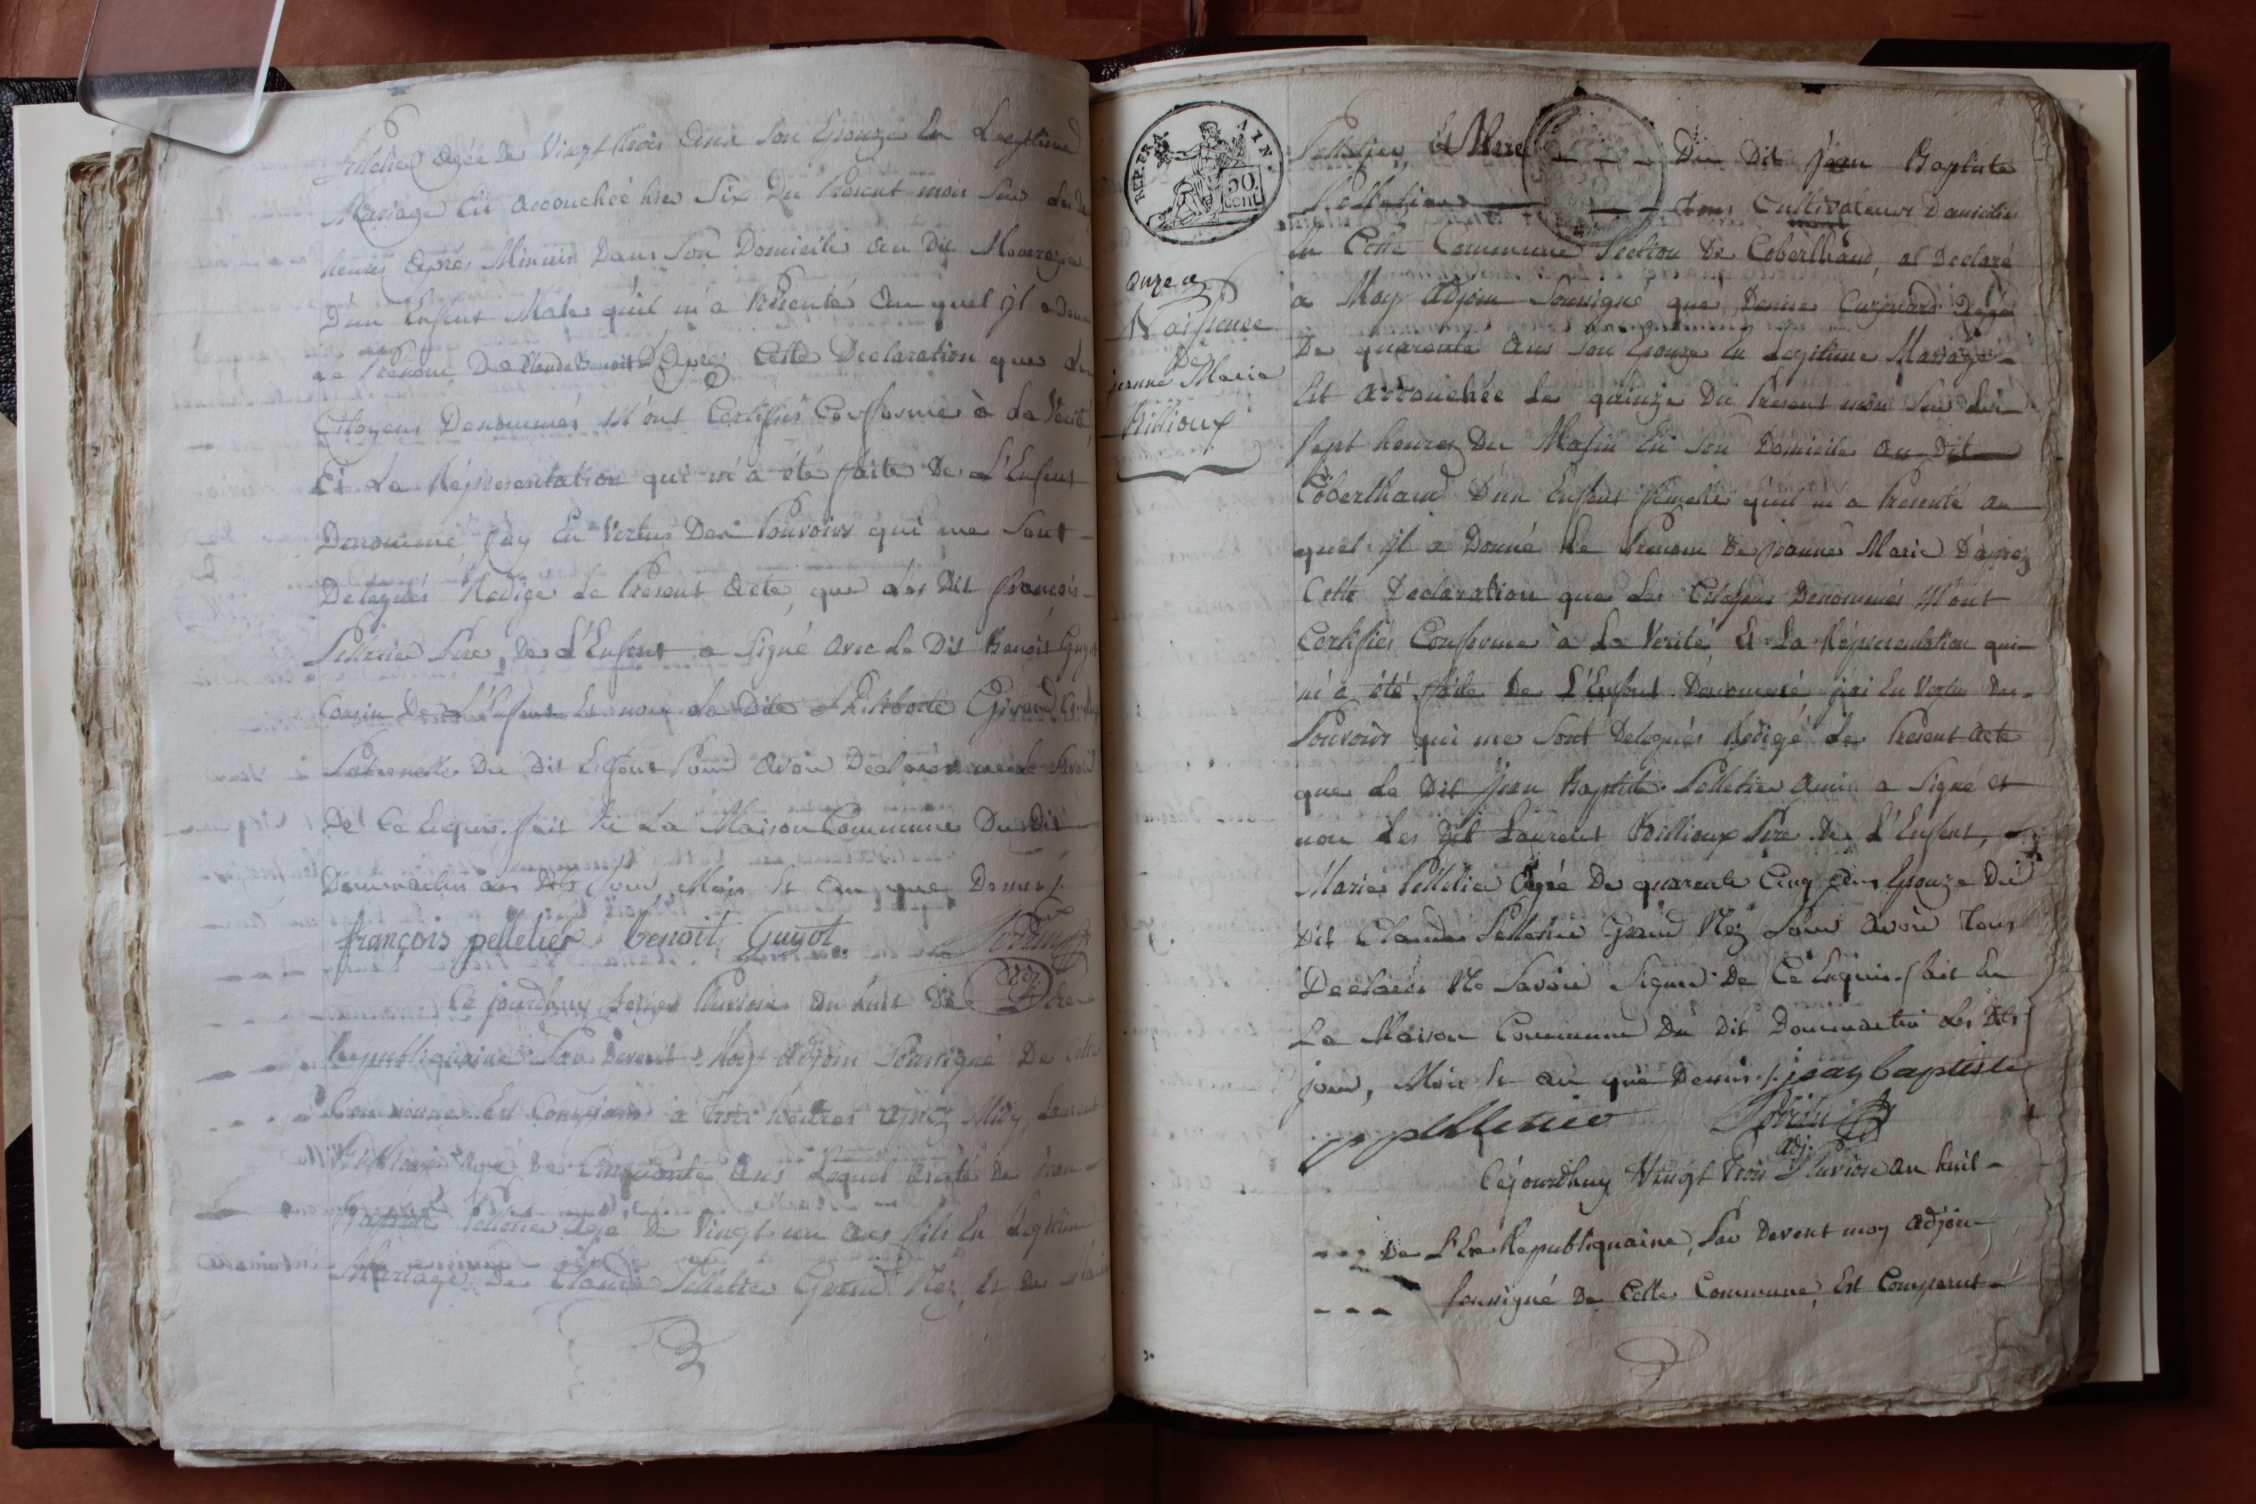 Pelletier agée de Vingt trois ans son Epouze en Legitime
Mariage Est accouchée hier Six du Present mois Sur les
heures après Minuit Dans Son Domicile au Dit
D'un Enfant Male qu'il m'a Présenté Au quel il a Donné
Le Prénom De Claude Benoit D'après Cette Declaration que Les
Citoyens Denommés M'ont Certifiés Conforme à La Verité
Et La Représentation qui m'a été faite De L'Enfant
Denommé, J'ay En Vertus Des Pouvoirs qui me Sont
Delegués Redigé Le Present Acte, que Les Dit françois
Pelletier Père, De L'Enfant a Signé Avec Le Dit Benoit Guyot
Cousin De L'Enfant Et non La Dite Philiberte Giraud
Paternelle Du Dit Enfant Pour Avoir Declaré ne le Savoir
De Ce Enquis. fait En La Maison Commune Du Dit
Dommartin Les Dits Jour, Mois Et An que Dessus
françois pelletier benoit Guyot
Ce jourdhuy Seizes Pluviose an huit De L'Ere
Republiquaine Par Devent Moy Adjoin Soussigné De Cette
Commune Est Comparu à trois heures Après Midy, Laurent
Billioux Agé De Cinquante Ans Lequel Assisté De Jean
Baptiste Pelletier Agé de Vingt un ans fils En Legitime
Mariage De Claude Pelletier Grand Nez, Et De Marie
REP. FRA. AIN
50. cent.
Onze
Naissance
De
jeanne Marie
Billioux
Pelletier, Et Mere Du Dit jean Baptiste
Pelletier Tous Cultivateurs Domiciliés
en Cette Commune Section De Coberthaud, at Declaré
a Moy Adjoin Soussigné que, Denise Agée
De quarante Ans Son Epouze En Legitime Mariage
Est accouchée Le quinze Du Present mois Sur Les
Sept heures Du Matin En Son Domicile au Dit
Coberthaud D'un Enfant femelle qu'il m'a Presenté au
quel il a Donné Le Prenom De Jeanne Marie D'après
Cette Declaration que Les Citoyens Denommés M'ont
Certifiés Conforme à La Verité, Et La Répresentation qui
m'a été faite De L'Enfant Denommé, j'ai En Vertus Des
Pouvoirs qui me Sont Delegués Redigé Le Present Acte
que Le Dit Jean Baptiste Pelletier Ami a Signé et
non Les Dit Laurent Billioux Père De L'Enfant,
Marie Pelletier Agée De quarante Cinq Ans Epouze Du
Dit Claude Pelletier Grand Nez Pour Avoir Tous
Declarés Ne Savoir Signer De Ce Enquis. fait En
La Maison Commune Du Dit Dommartin Les Dits
jour, Mois Et an que Dessus jean baptiste
pelletier
adj.
Cejourdhuy Vingt trois Pluviose an huit
De L'Ere Republiquaine, Par Devent moy Adjoin
Soussigné De Cette Commune, Est Comparut